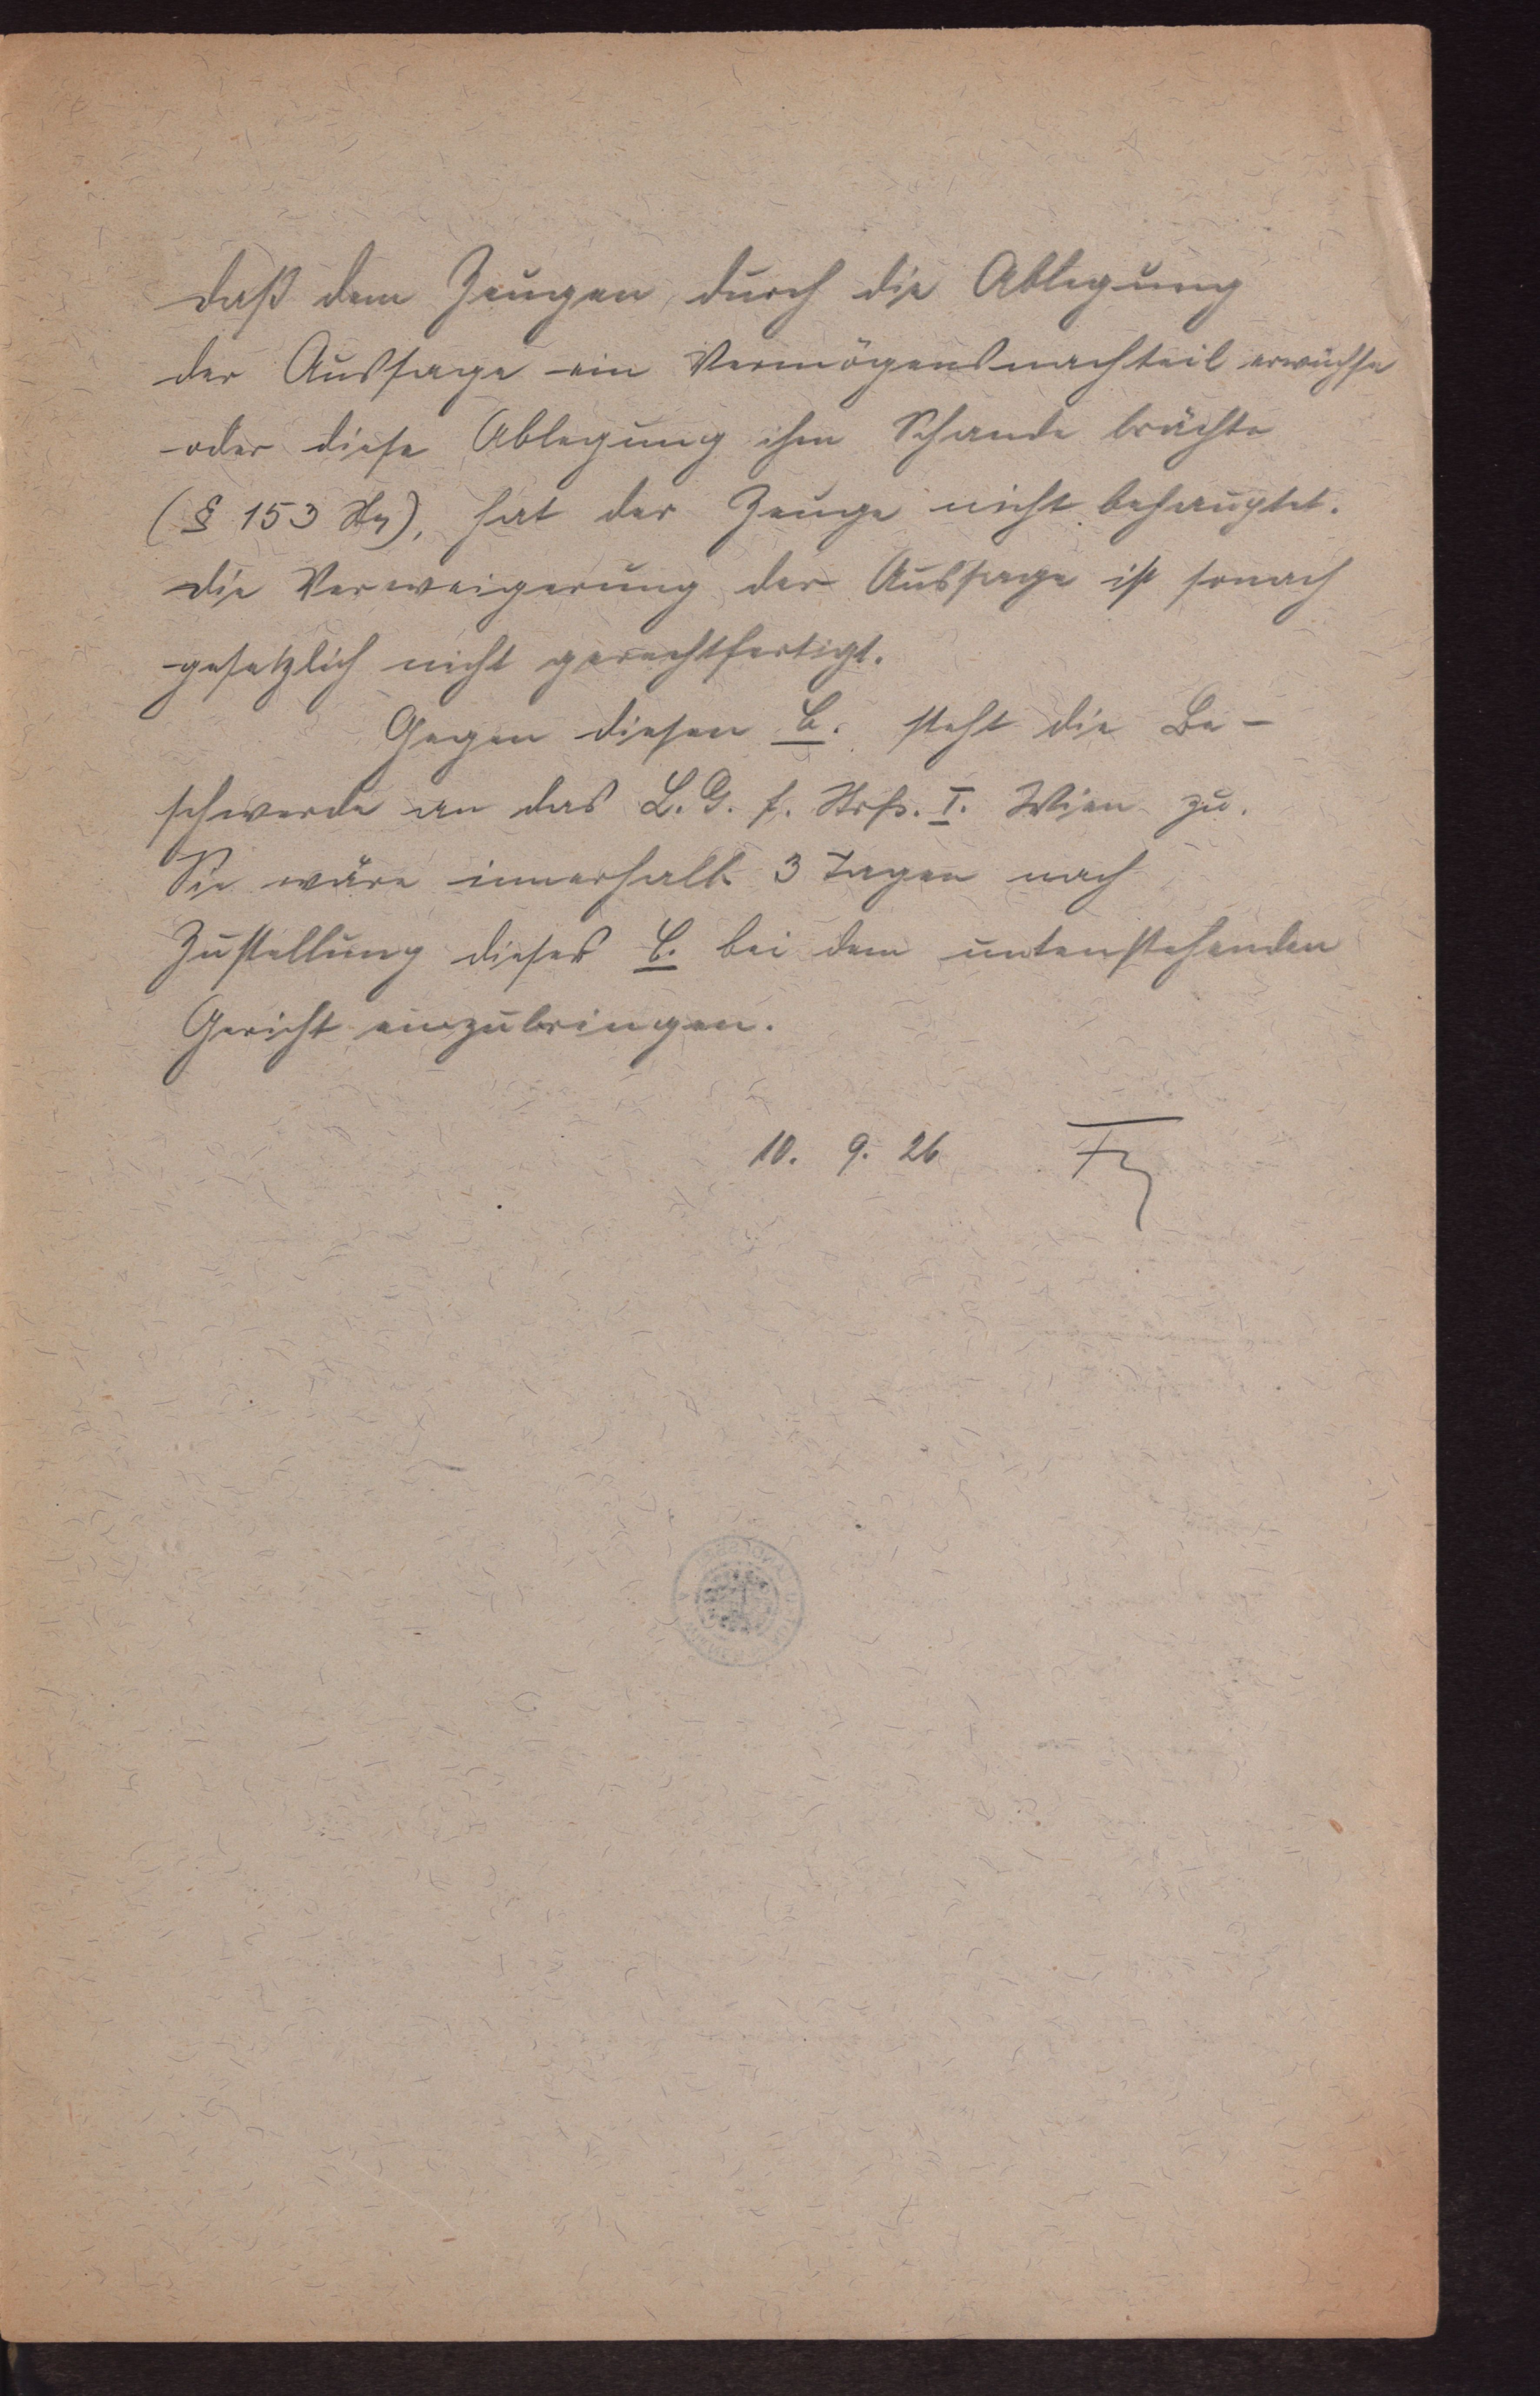 daß dem Zeugen durch die Ablegung
der Aussage ein Vermögensnachteil erwüchse
oder diese Ablegung ihm Schande brächte
(§ 153 Stp), hat der Zeuge nicht behauptet.
Die Verweigerung der Aussage ist sonach
gesetzlich nicht gerechtfertigt.
Gegen diesen B. steht die Be-
schwerde an das L.G. f. Strfs. I. Wien zu.
Sie wäre innerhalb 3 Tagen nach
Zustellung dieses B. bei dem untenstehenden
Gericht einzubringen.
10. 9. 26